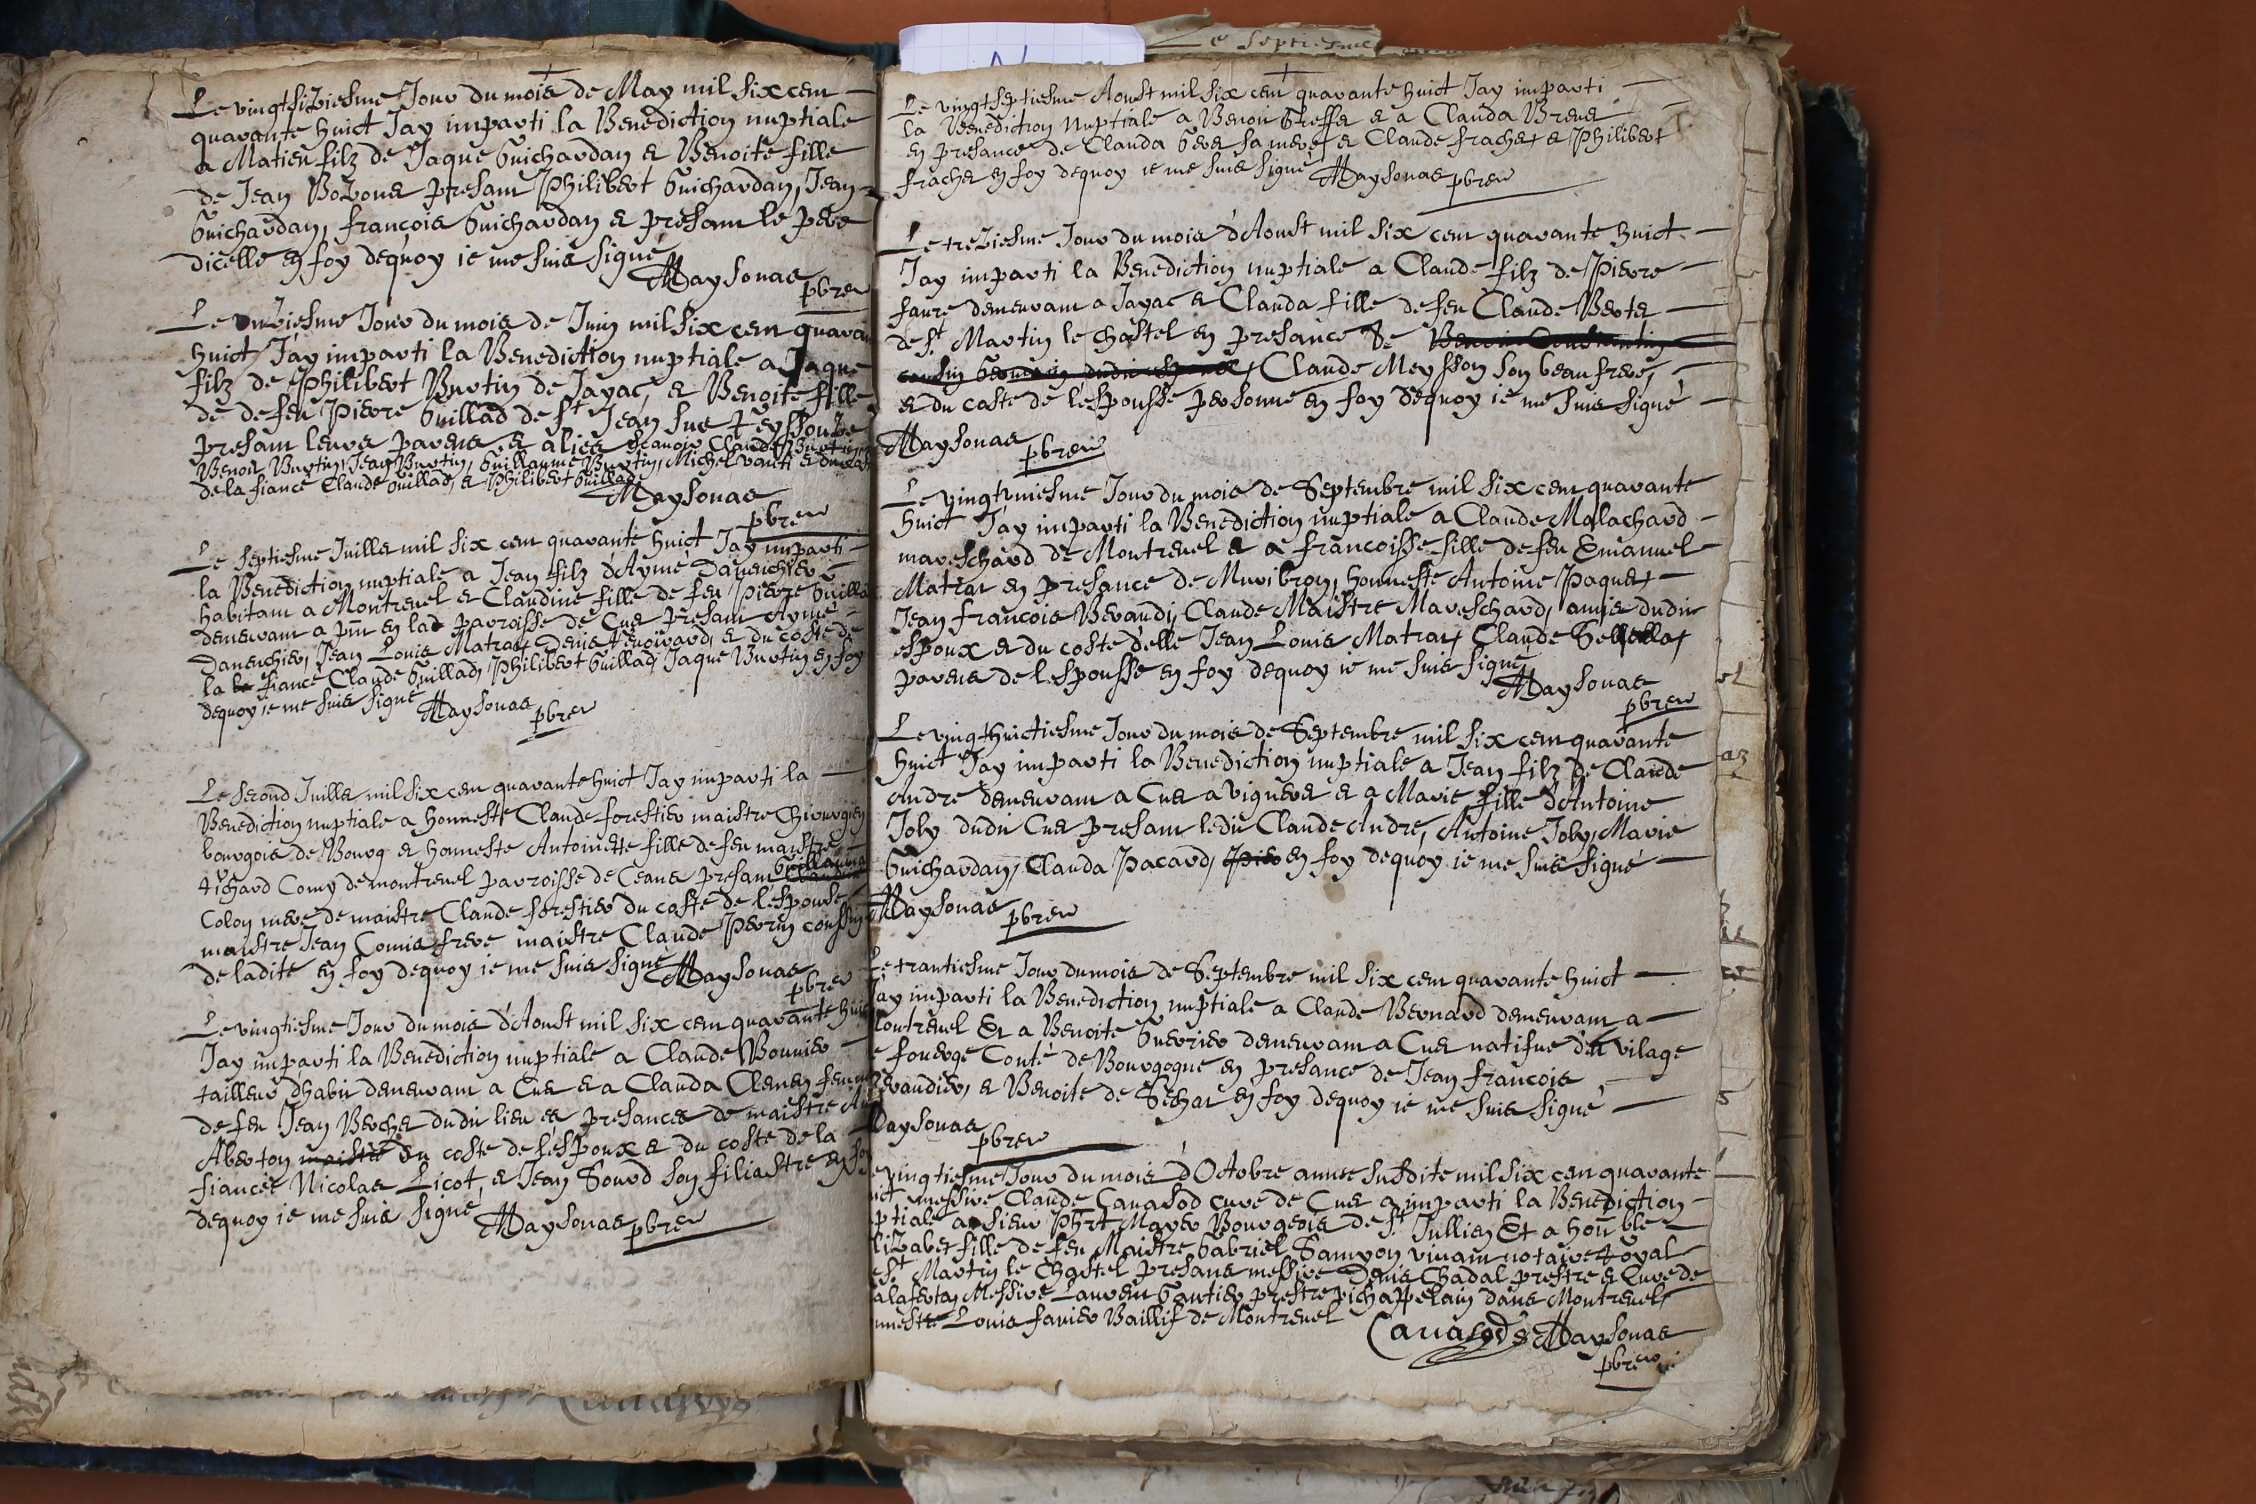 Le vingtsiziesme Jour du mois de May mil six cent
quarante huict Jay imparti la Benediction nuptiale
a Matieu filz de Jaque Guichardan et Benoite fille
de Jean presant Philibert Guichardan, Jean
Guichardan, francois Guichardan et presant le pere
dicelle en foy dequoy ie me suis signé
Maysonas
pbre
Le unziesme Jour du mois de Juin mil six cent quaran
huict Jay imparti la Benediction nuptiale a Jaque
filz de Philibert Burtin de Jayac, et Benoite fille
de defeu Pierre Guillad de st Jean sus Reyssouze
presant leurs parens et aliés scavoir Claude Burtin
Benoit Burtin, Jean Burtin, Guillaume Burtin, Michel et du
de la fiance Claude Guillad, et Philibert Guillad
Maysonas
pbre
Le septiesme Juillet mil six cent quarante huict Jay imparti
la Benediction nuptiale a Jean filz d'Aymé Danenchier
habitant a Montrevel et Claudine fille de feu Pierre Guilla
demeurant a pnt en lad parroisse de Cuet presant Aymé
Danenchier, Jean Louis Matrat, Denis Renoivard, et du coste de
la fiance Claude Guillad, Philibert Guillad Jaque Burtin en foy
dequoy ie me suis signé Maysonas
pbre
Le second Juillet mil six cent quarante huict Jay imparti la
Benediction nuptiale a honneste Claude forestier maistre Chirurgien
bourgois de Bourg et honneste Antoinette fille de feu maistre
Richard Comy de montrevel parroisse de Ceans presant Guillauma
Colon mere de maistre Claude forestier du coste de l'espouse
maistre Jean Comis frere maistre Claude Perrin coussin
de ladite en foy dequoy ie me suis signé Maysonas
pbre
Le vingtiesme Jour du mois d'Aoust mil six cent quarante huic
Jay imparti la Benediction nuptiale a Claude Bonnier
tailleur dhabit demeurant a Cuet et a Clauda Clement
de feu Jean Berchet dudit lieu es presances de maistre
Aberton du coste de l'espoux et du coste de la
fiancée Nicolas Licot, et Jean Sourd son filiastre en foy
dequoy ie me suis signé Maysonas pbre
Le vingtseptiesme Aoust mil six cent quarante huict Jay imparti
la Benediction Nuptiale a Benoit Greffet et a Clauda Brenet
en presance de Clauda sa mere, et Claude frachet et Philibert
frachet en foy dequoy ie me suis signé Maysonas pbre
Le treziesme Jour du mois d'Aoust mil six cent quarante huict
Jay imparti la Benediction nuptiale a Claude filz de Pierre
faure demeurant a Jayac et Clauda fille de feu Claude Bertet
de st Martin le chastel en presance de
Claude Meysson son beau frere,
et du coste de lespousse personne en foy dequoy ie me suis signé
Maysonas
pbre
Le vingtuniesme Jour du mois de Septembre mil six cent quarante
huict Jay imparti la Benediction nuptiale a Claude Malachard
mareschard de Montrevel et a francoisse fille de feu Emanuel
Matrat en presance de honneste Antoine Paquet
Jean francois Berandi, Claude Maistre Mareschard, amis dudit
espoux et du coste d'elle Jean Louis Matrat, Claude
parens de lespousse en foy dequoy ie me suis signé
Maysonas
pbre
Le vingthuictiesme Jour du mois de Septembre mil six cent quarante
huict Jay imparti la Benediction nuptiale a Jean filz de Claude
André demeurant a Cuet avigneret et a Marie fille d'Antoine
Joly dudit Cuet presant ledit Claude André, Antoine Joly, Marie
Guichardan, Clauda Pacard, en foy dequoy ie me suis signé
Maysonas
pbre
Le trantiesme Jour du mois de Septembre mil six cent quarante huict
Jay imparti la Benediction nuptiale a Claude Bernard demeurant a
Montrevel Et a Benoite Guerrier demeurant a Cuet natifue du vilage
Conté de Bourgogne en presance de Jean francois
et Benoite de Sechat en foy dequoy ie me suis signé
Maysonas
pbre
vingtiesme Jour du mois d'Octobre annee susdite mil six cent quarante
messire Claude Canasod curé de Cuet a imparti la Benediction
ptiale a sieur Phrt Mayer Bourgeois de st Jullien Et a honble
lizabet fille de feu Maistre Gabriel vivant notaire Royal
st Martin le Chastel presans messire Denis Chadal prestre et Curé de
Messire Laurent Gautier prestre vichappelain dans Montrevel,
nneste Louis favier Baillif de Montrevel
Canasod Maysonas
pbre